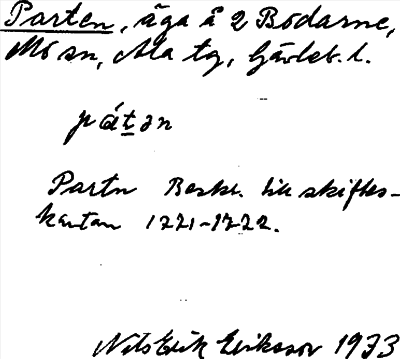 Parten, äga å 2 Bodarne,
Mo sn, Ala tg, Gävleb. l.
pát̲ən
Partn Beskr. till skiftes-
kartan 1221-1222.
Nils Erik Eriksson 1973